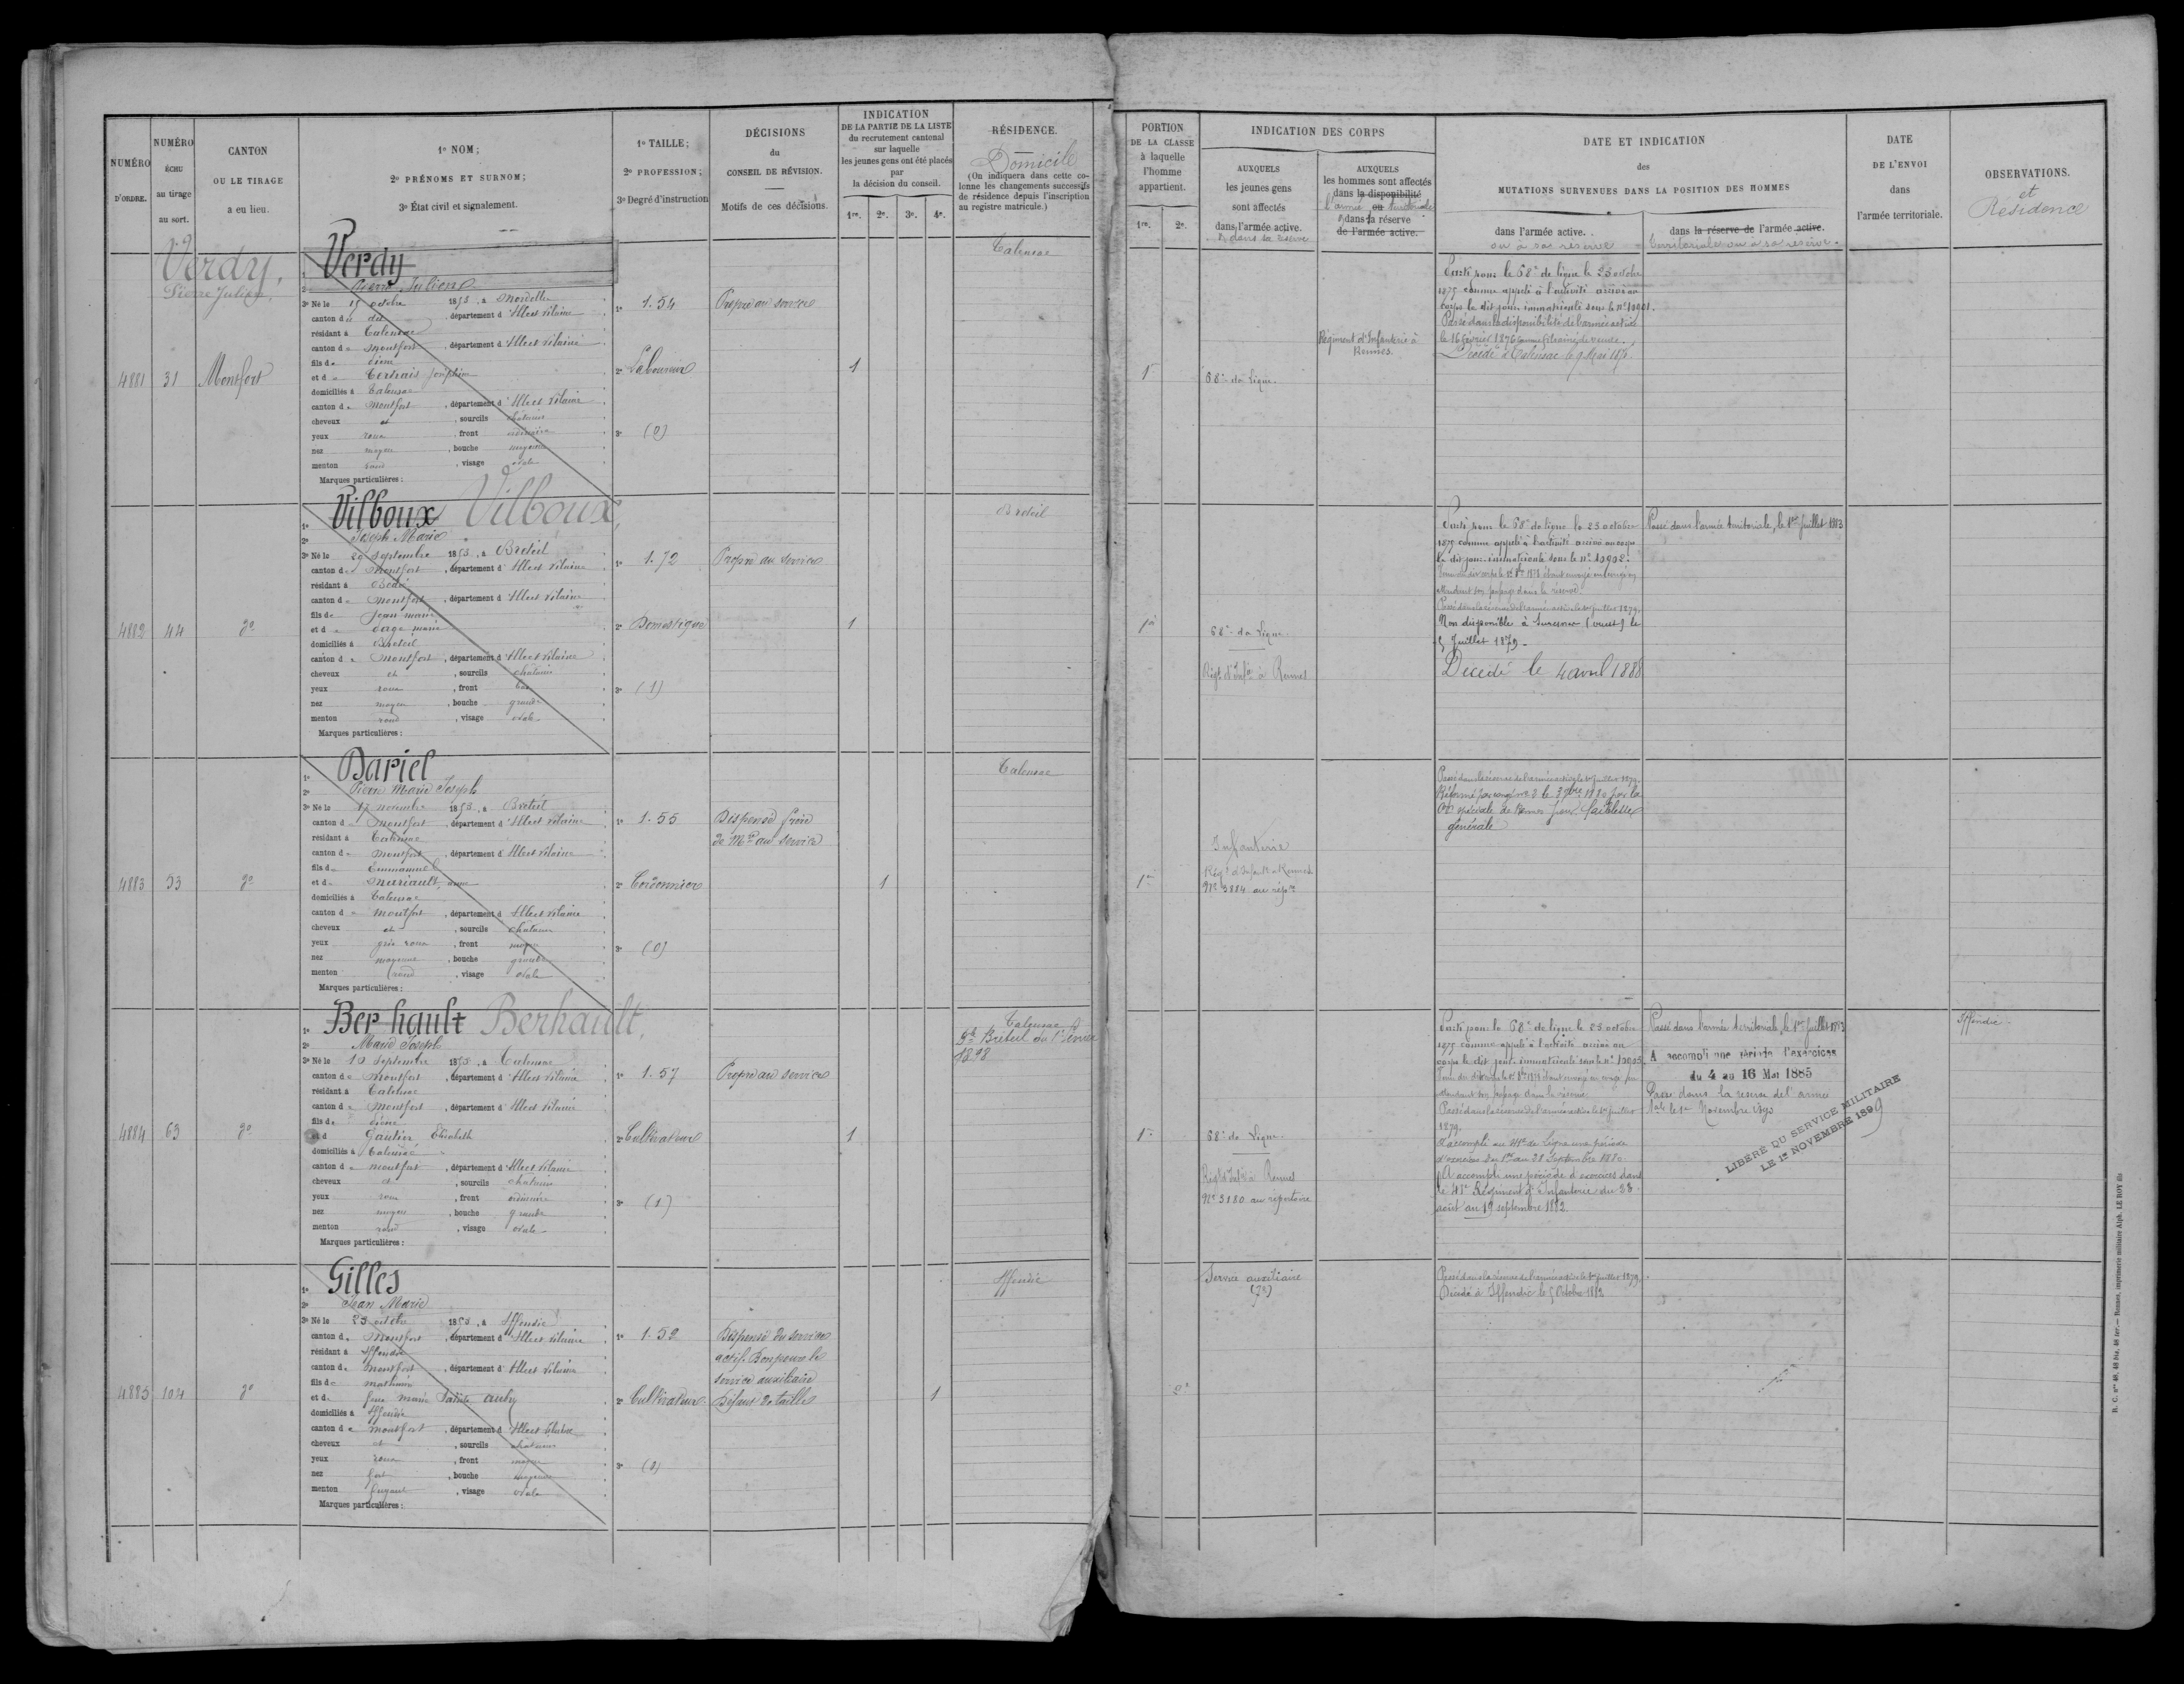 NUMÉRO
D'ORDRE.
NUMÉRO
ÉCHU
au tirage
au sort.
CANTON
OU LE TIRAGE
a eu lieu.
1º NOM;
2º PRÉNOMS ET SURNOM;
3º État civil et signalement.
1º TAILLE;
2º PROFESSION;
3º Degré d'instruction
DÉCISIONS
du
CONSEIL DE RÉVISION.
Motifs de ces décisions.
INDICATION
DE LA PARTIE DE LA LISTE
du recrutement cantonal
sur laquelle
les jeunes gens ont été placés
par
la décision du conseil.
1re. 2e. 3e. 4e.
RÉSIDENCE.
Domicile
(On indiquera dans cette co-
lonne les changements successifs
de résidence depuis l'inscription
au registre matricule.)
PORTION
DE LA CLASSE
à laquelle
l'homme
appartient.
1re. 2e.
INDICATION DES CORPS
AUXQUELS
les jeunes gens
sont affectés
dans l'armée active.
& dans sa réserve
AUXQUELS
les hommes sont affectés
dans la disponibilité
l'armée ou territoriale
dans la réserve
de l'armée active.
DATE ET INDICATION
des
MUTATIONS SURVENUES DANS LA POSITION DES HOMMES
dans l'armée active.
ou à sa réserve
dans la réserve de l'armée active.
territoriale ou à sa réserve.
DATE
DE L'ENVOI
dans
l'armée territoriale.
OBSERVATIONS.
et
Résidence
Verdy
Pierre Julien
4881 31 Montfort
Verdy
Pierre Julien
3º Né le 15 octobre 1853, à Mordelles
canton d dit, département d'Ille et Vilaine
résidant à Talensac
canton de Montfort, département d'Ille et Vilaine
fils de Pierre
et d Joséphine
domiciliés à Talensac
canton de Montfort, département d'Ille et Vilaine
cheveux ch, sourcils châtains
yeux roux, front ordinaire
nez moyen, bouche moyenne
menton rond, visage ovale
Marques particulières:
1º 1.54
2º Laboureur
3º (0)
Propre au service
1
Talensac
1re
68e de Ligne.
Régiment d'Infanterie à
Rennes.
Parti pour le 68e de ligne le 25 octobre
1875 comme appelé à l'activité arrivé au
corps le dit jour immatriculé sous le nº 10901.
Passé dans la disponibilité de l'armée active
le 16 février 1876 comme fils aîné de veuve.
Décédé à Talensac le 9 Mai 187
4882 44 dº
1º Vilboux Vilboux
2º Joseph Marie
3º Né le 29 Septembre 1853, à Breteil
canton de Montfort, département d'Ille et Vilaine
résidant à Bédée
canton de Montfort, département d'Ille et Vilaine
fils de Jean marie
et d marie
domiciliés à Breteil
canton de Montfort, département d'Ille et Vilaine
cheveux ch, sourcils châtains
yeux roux, front bas
nez moyen, bouche grande
menton rond, visage ovale
Marques particulières:
1º 1.72
2º Domestique
3º (1)
Propre au service
1
Breteil
1re
68e de Ligne.
Régt d'Infie à Rennes
Parti pour le 68e de ligne le 25 octobre
1875 comme appelé à l'activité arrivé au corps
le dit jour immatriculé sous le nº 10902.
attendant son passage dans la réserve
Passé dans la réserve de l'armée active le 1er juillet 1879.
Non disponible à Suresnes (ouest) le
5 Juillet 1879.
Décédé le 4 avril 1888
Passé dans l'armée territoriale, le 1er Juillet 1883
4883 53 dº
1º Dariel
2º Pierre Marie Joseph
3º Né le 17 novembre 1853, à Breteil
canton de Montfort, département d'Ille et Vilaine
résidant à Talensac
canton de Montfort, département d'Ille et Vilaine
fils de Emmanuel
et de Mariault, anne
domiciliés à Talensac
canton de Montfort, département d'Ille et Vilaine
cheveux ch, sourcils châtains
yeux gris roux, front moyen
nez moyenne, bouche grande
menton rond, visage ovale
Marques particulières:
1º 1.55
2º Cordonnier
3º (0)
Dispensé frère
de Mre au service
1
Talensac
1re
Infanterie
Régt d'Infanie à Rennes
Nº 3884 au répre
Passé dans la réserve de l'armée active le 1er juillet 1879.
Réformé par congé nº 2 le 3 9bre 1880 par la
Con spéciale de Rennes pour faiblesse
générale
4884 63 dº
1º Berhault Berhault,
2º Marie Joseph
3º Né le 10 Septembre 1853, à Talensac
canton de Montfort, département d'Ille et Vilaine
résidant à Talensac
canton de Montfort, département d'Ille et Vilaine
fils de Pierre
et d Gautier Elisabeth
domiciliés à Talensac
canton de Montfort, département d'Ille et Vilaine
cheveux ch, sourcils châtains
yeux roux, front ordinaire
nez moyen, bouche grande
menton rond, visage ovale
Marques particulières:
1º 1.57
2º Cultivateur
3º (1)
Propre au service
1
Talensac
Breteil
1898
1re
68e de Ligne.
Régt d'Infie à Rennes
Nº 3180 au répertoire
Parti pour le 68e de ligne le 25 octobre
1875 comme appelé à l'activité arrivé au
corps le dit jour immatriculé sous le nº 10903.
attendant son passage dans la réserve.
Passé dans la réserve de l'armée active le 1er juillet
1879.
A accompli au 41e de Ligne une période
d'exercices du 1er au 28 Septembre 1880.
A accompli une période d'exercices dans
le 41e Régiment d'Infanterie du 23
août au 19 septembre 1882.
Passé dans l'armée territoriale, le 1er Juillet 1883
A accompli une période d'exercices
du 4 au 16 Mai 1885
Passé dans la réserve de l'armée
tale le 1er Novembre 1893
LIBÉRÉ DU SERVICE MILITAIRE
LE 1er NOVEMBRE 1899
Iffendic
4885 104 dº
1º Gilles
2º Jean Marie
3º Né le 23 octobre 1853, à Iffendic
canton de Montfort, département d'Ille et Vilaine
résidant à Iffendic
canton de Montfort, département d'Ille et Vilaine
fils de mathurin
et de feue marie Aubry
domiciliés à Iffendic
canton de Montfort, département d'Ille et Vilaine
cheveux ch, sourcils châtains
yeux roux, front moyen
nez fort, bouche moyenne
menton fuyant, visage ovale
Marques particulières:
1º 1.52
2º Cultivateur
3º (0)
Dispensé du service
actif. Bon pour le
service auxiliaire
Défaut de taille
1
Iffendic
2e
Service auxiliaire
Passé dans la réserve de l'armée active le 1er juillet 1879.
Décédé à Iffendic le 5 Octobre 1882
R. C. nos 48, 48 bis, 48 ter. — Rennes, imprimerie militaire Alph. LE ROY fils